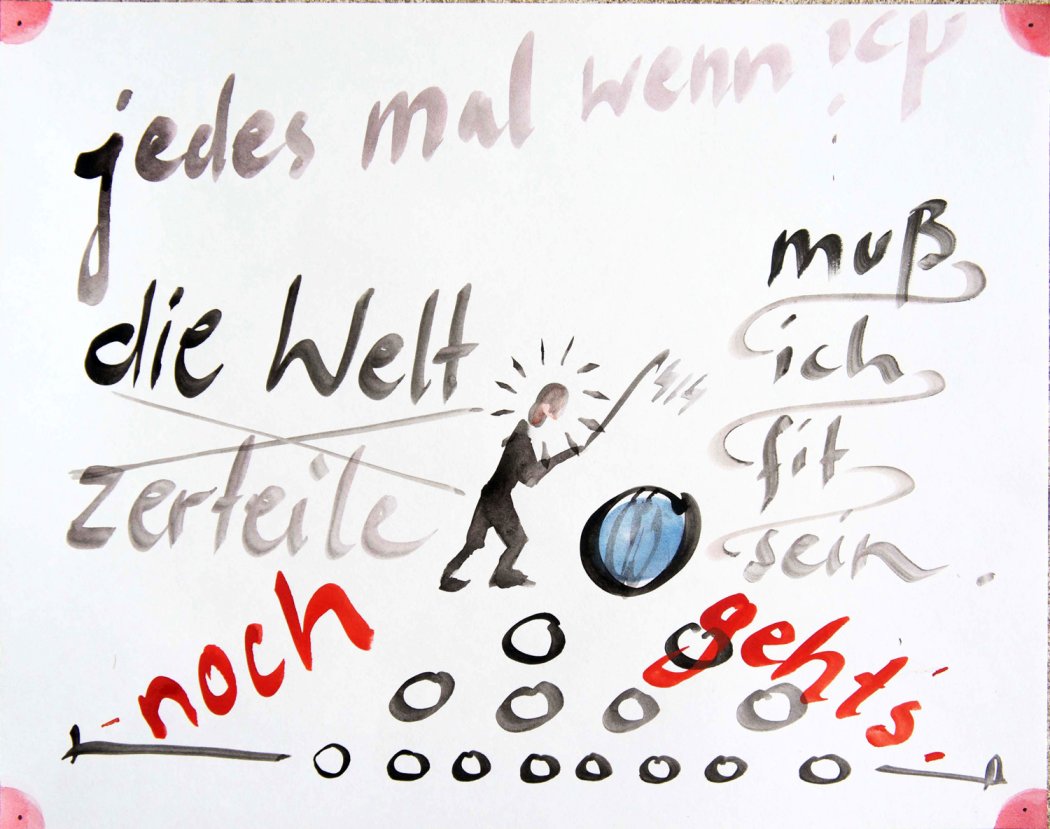 jedes mal wenn ich
die Welt
zerteile
muß
ich
fit
sein.
- noch geht's -